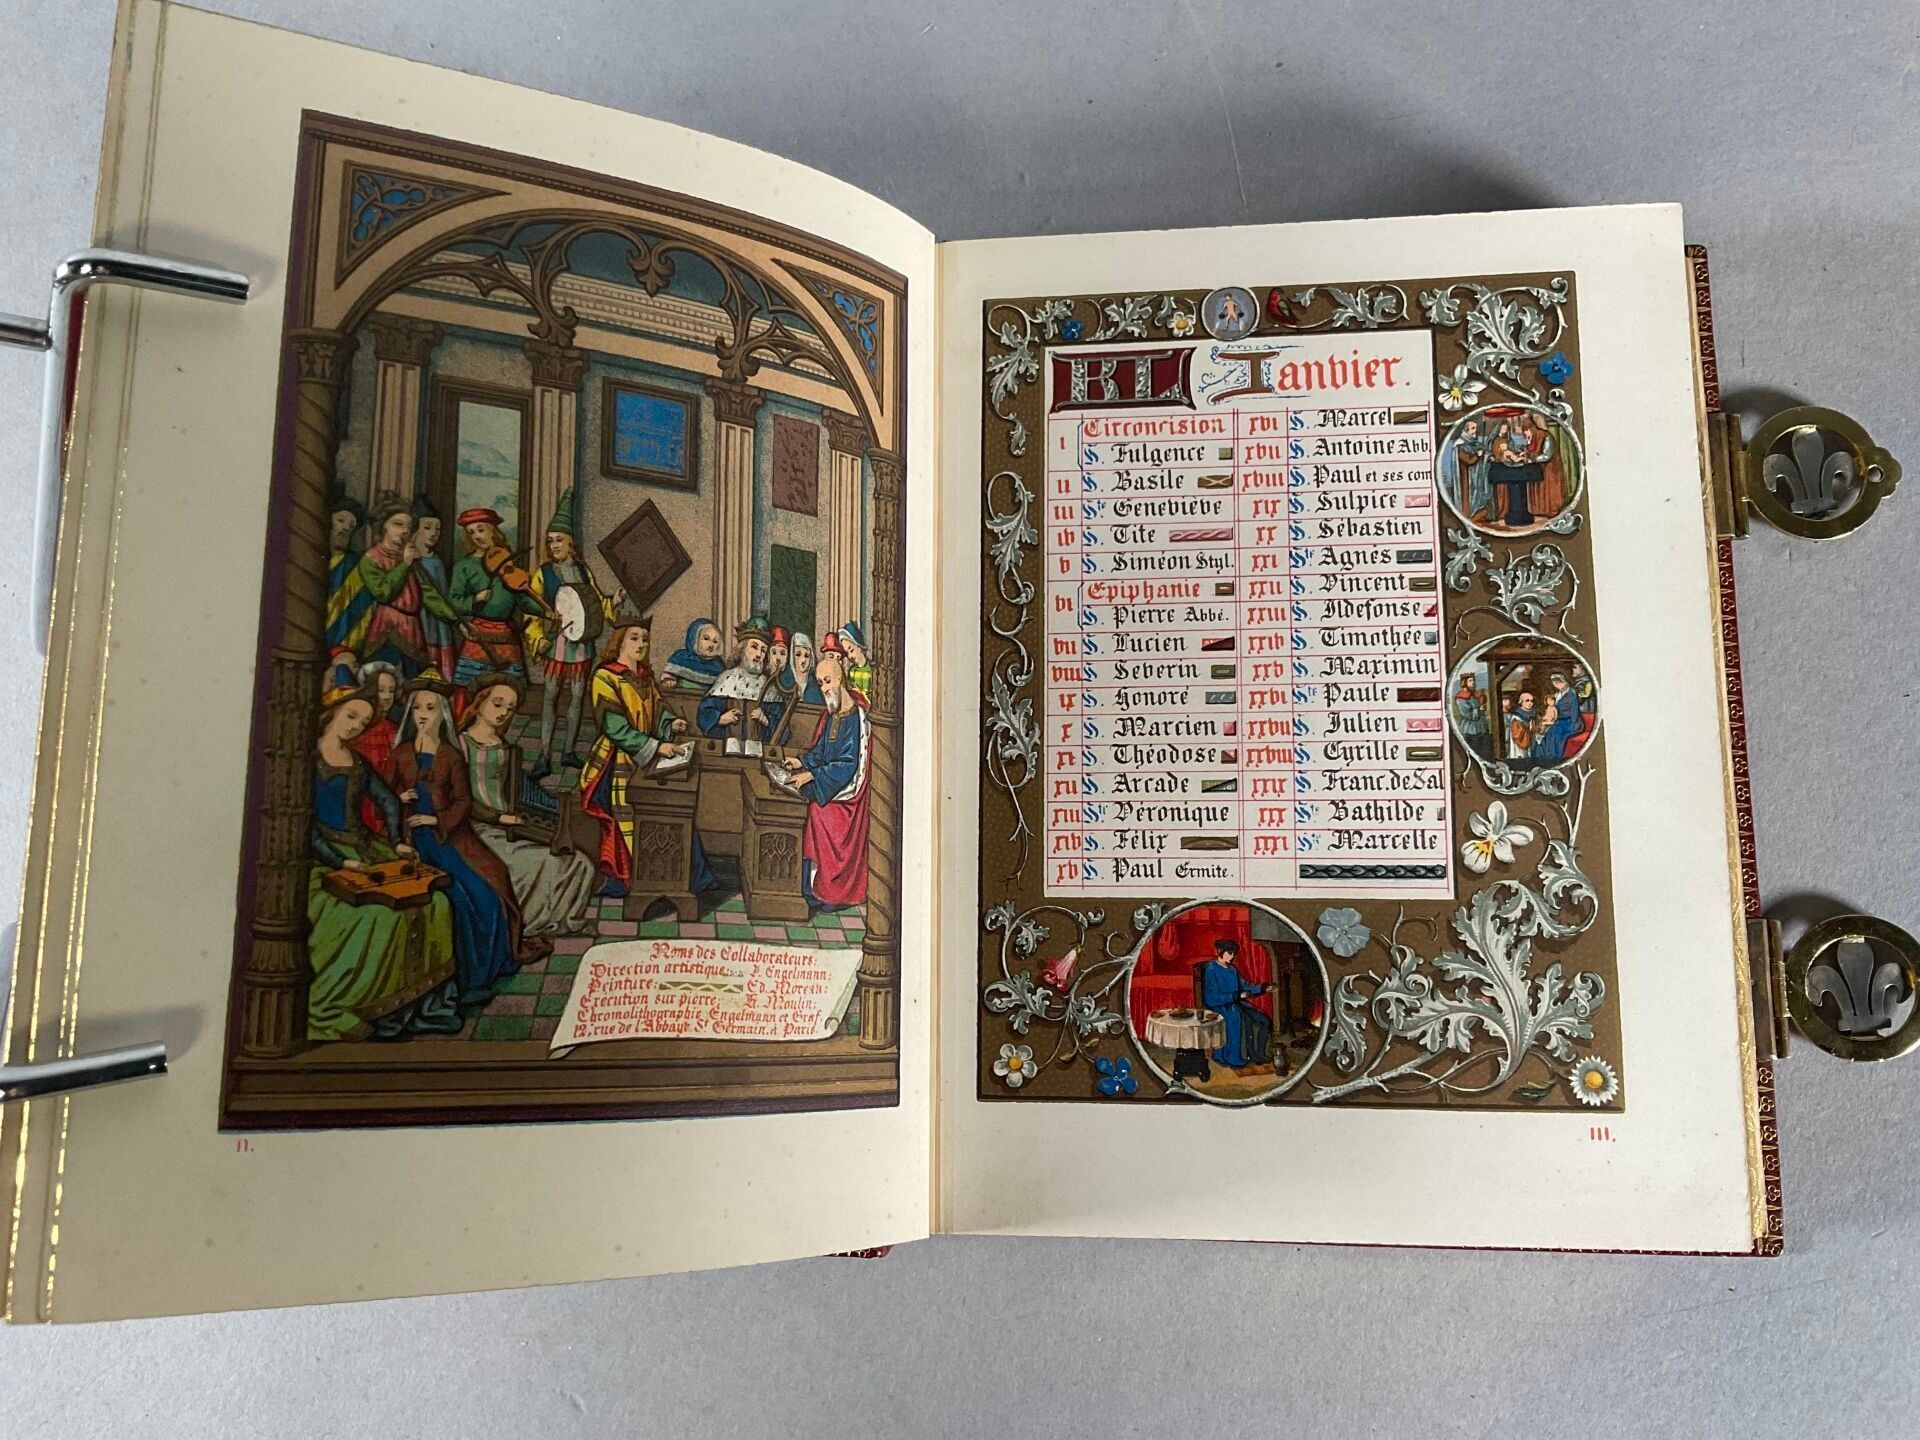 Noms des Collaborateurs:
Direction artistique: G. Engelmann;
Peinture: Ed. Moreau;
Exécution sur pierre: H. Moulin;
Chromolithographie, Engelmann et Graf,
12, rue de l'Abbaye St Germain, à Paris.
II.
KL Janvier.
I Circoncision
S. Fulgence
II S. Basile
III Ste Geneviève
IV S. Tite
V S. Siméon Styl.
VI Epiphanie
S. Pierre Abbé.
VII S. Lucien
VIII S. Séverin
IX S. Honoré
X S. Marcien
XI S. Théodose
XII S. Arcade
XIII Ste Véronique
XIV S. Félix
XV S. Paul Ermite.
XVI S. Marcel
XVII S. Antoine Abb.
XVIII S. Paul et ses com
XIX S. Sulpice
XX S. Sébastien
XXI Ste Agnès
XXII S. Vincent
XXIII S. Ildefonse
XXIV S. Timothée
XXV S. Maximin
XXVI Ste Paule
XXVII S. Julien
XXVIII S. Cyrille
XXIX S. Franc. de Sal
XXX Ste Bathilde
XXXI Ste Marcelle
III.